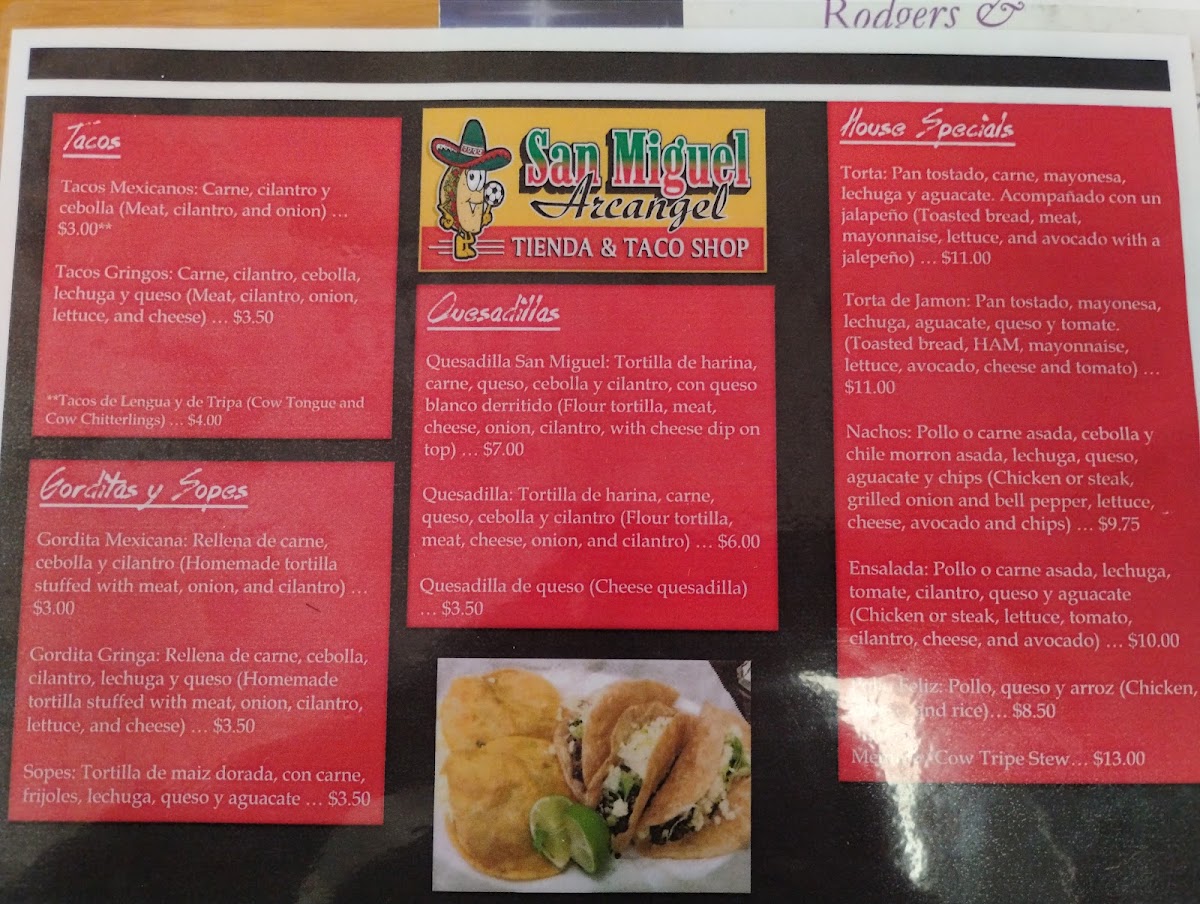 Rodgers &
Tacos
Tacos Mexicanos: Carne, cilantro y
cebolla (Meat, cilantro, and onion) …
$3.00**
Tacos Gringos: Carne, cilantro, cebolla,
lechuga y queso (Meat, cilantro, onion,
lettuce, and cheese) … $3.50
**Tacos de Lengua y de Tripa (Cow Tongue and
Cow Chitterlings) … $4.00
Gorditas y Sopes
Gordita Mexicana: Rellena de carne,
cebolla y cilantro (Homemade tortilla
stuffed with meat, onion, and cilantro) …
$3.00
Gordita Gringa: Rellena de carne, cebolla,
cilantro, lechuga y queso (Homemade
tortilla stuffed with meat, onion, cilantro,
lettuce, and cheese) … $3.50
Sopes: Tortilla de maiz dorada, con carne,
frijoles, lechuga, queso y aguacate … $3.50
San Miguel
Arcangel
TIENDA & TACO SHOP
Quesadillas
Quesadilla San Miguel: Tortilla de harina,
carne, queso, cebolla y cilantro, con queso
blanco derritido (Flour tortilla, meat,
cheese, onion, cilantro, with cheese dip on
top) … $7.00
Quesadilla: Tortilla de harina, carne,
queso, cebolla y cilantro (Flour tortilla,
meat, cheese, onion, and cilantro) … $6.00
Quesadilla de queso (Cheese quesadilla)
… $3.50
House Specials
Torta: Pan tostado, carne, mayonesa,
lechuga y aguacate. Acompañado con un
jalapeño (Toasted bread, meat,
mayonnaise, lettuce, and avocado with a
jalepeño) … $11.00
Torta de Jamon: Pan tostado, mayonesa,
lechuga, aguacate, queso y tomate.
(Toasted bread, HAM, mayonnaise,
lettuce, avocado, cheese and tomato) …
$11.00
Nachos: Pollo o carne asada, cebolla y
chile morron asada, lechuga, queso,
aguacate y chips (Chicken or steak,
grilled onion and bell pepper, lettuce,
cheese, avocado and chips) … $9.75
Ensalada: Pollo o carne asada, lechuga,
tomate, cilantro, queso y aguacate
(Chicken or steak, lettuce, tomato,
cilantro, cheese, and avocado) … $10.00
Feliz: Pollo, queso y arroz (Chicken,
and rice)… $8.50
Cow Tripe Stew… $13.00